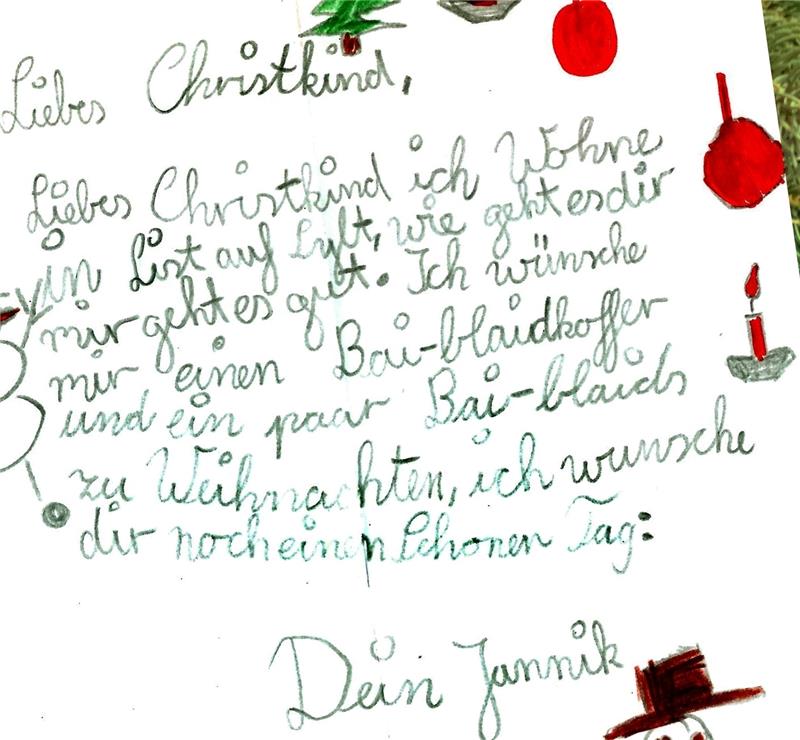 Liebes Christkind,
Liebes Christkind ich Wohne
in List auf Sylt, wie geht es dir
mir geht es gut. Ich wünsche
mir einen Bai-blaidkoffer
und ein paar Bai-blaids
zu Weihnachten, ich wunsche
dir noch einen Schonen Tag:
Dein Jannik